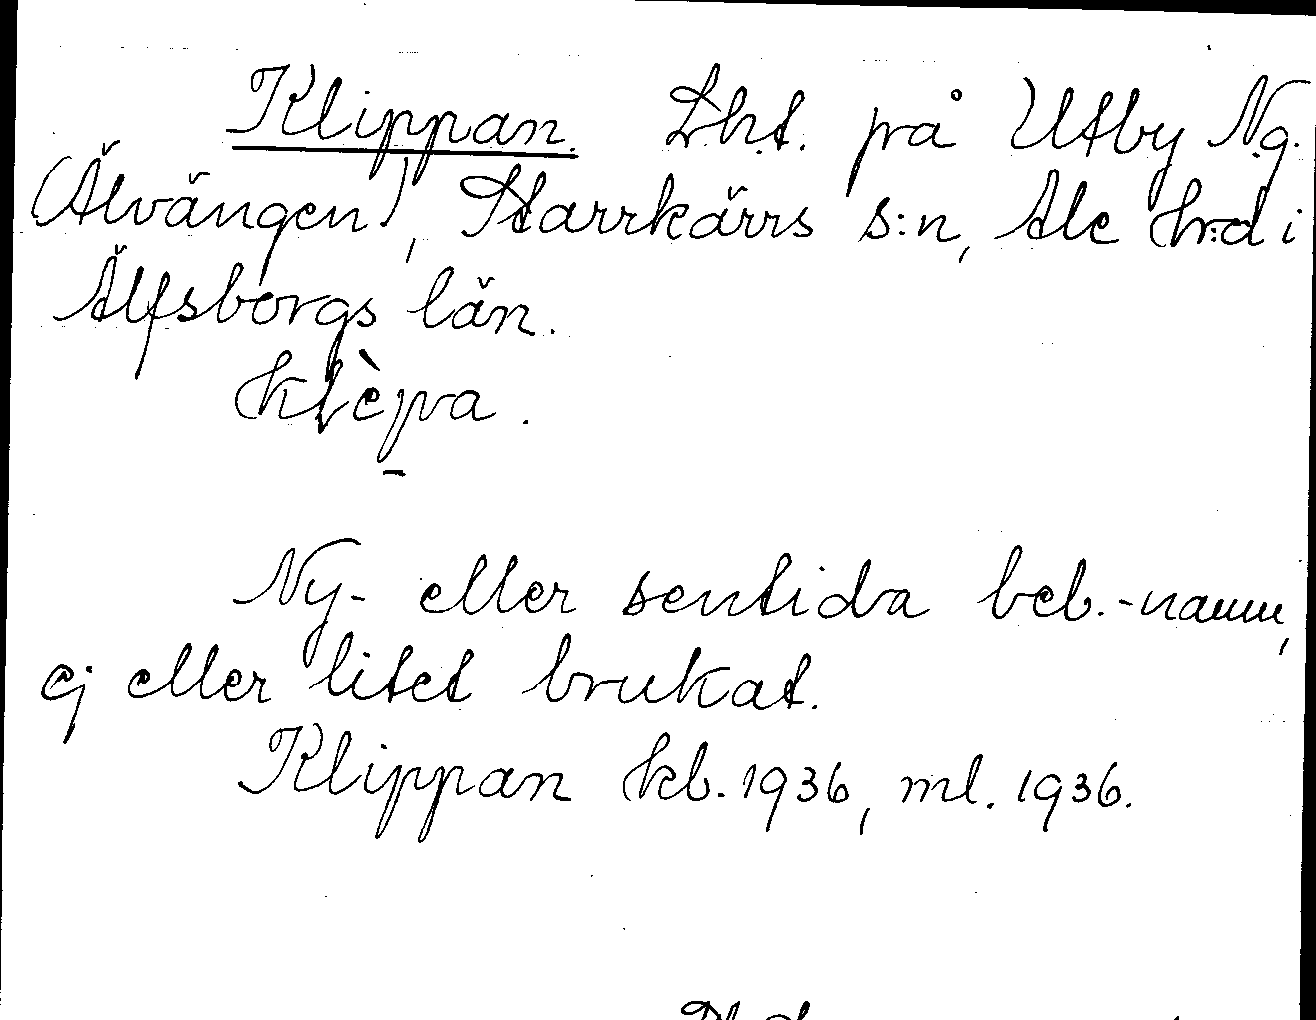 Klippan. Lht. på Utby Ng.
(Älvängen), Starrkärrs s:n, Ale hrd i
Älfsborgs län.
klèpa.
Ny- eller sentida beb.-namn,
ej eller litet brukat.
Klippan kb. 1936, ml. 1936.